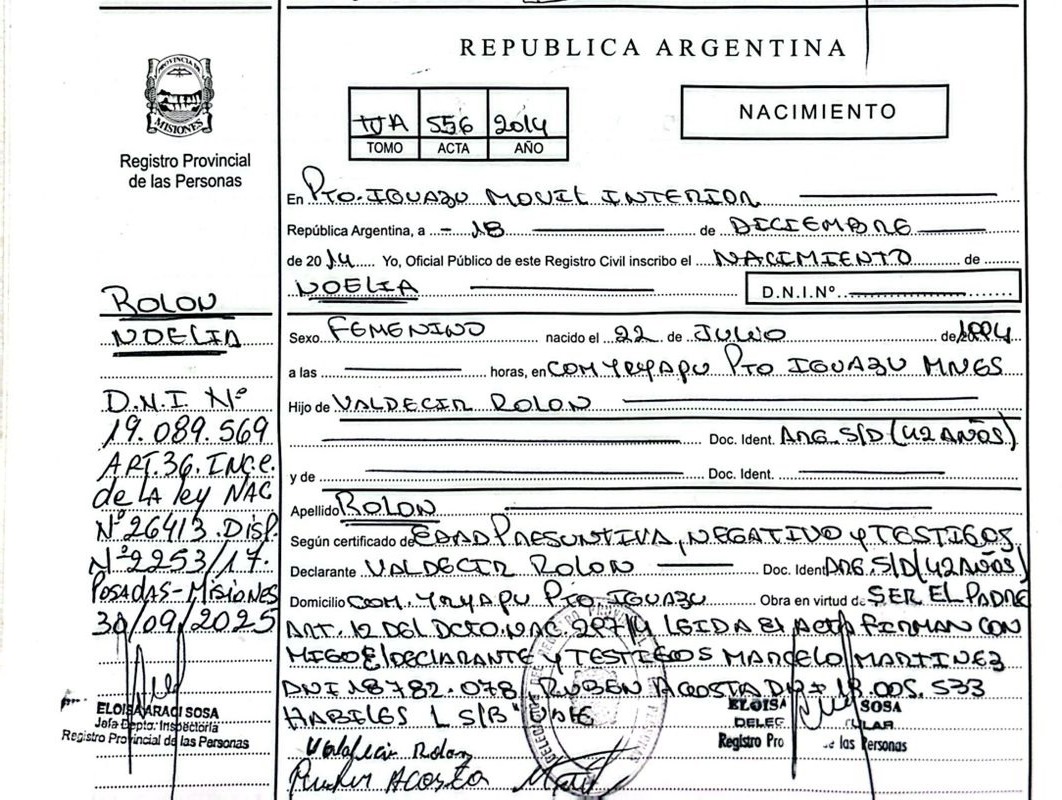 PROVINCIA DE
MISIONES
Registro Provincial
de las Personas
ROLON
NOELIA
D.N.I Nº
19.089.569
ART.36. INC.e.
de LA ley NAC
Nº 26413. Disp.
Nº2253/17.
Posadas-Misiones
30/09/2025
ELOISA ARACI SOSA
Jefa Depto. Inspectoria
Registro Provincial de las Personas
REPUBLICA ARGENTINA
556 2014
TOMO ACTA AÑO
NACIMIENTO
En Pto. IGUAZU MOVIL INTERIOR
República Argentina, a 18 de DICIEMBRE
de 2014 Yo, Oficial Público de este Registro Civil inscribo el NACIMIENTO de
NOELIA D.N.I.Nº
Sexo FEMENINO nacido el 22 de JULIO de 1994
a las horas, en COM. YRYAPU Pto IGUAZU MNES
Hijo de VALDECIR ROLON
Doc. Ident. ARG. S/D (42 AÑOS)
y de Doc. Ident.
Apellido ROLON
Según certificado de EDAD PRESUNTIVA, NEGATIVO y TESTIGOS
Declarante VALDECIR ROLON Doc. Ident ARG. S/D (42 AÑOS)
Domicilio COM. YRYAPU Pto IGUAZU Obra en virtud de SER EL PADRE
ART. 12 DEL DCTO. NAC. 297/ LEIDA EL ACTA FIRMAN CON
MIGO El DECLARANTE y TESTIGOS MARCELO MARTINEZ
DNI 18782.078, RUBEN ACOSTA DNI 19.005.533
HABILES
ELOISA SOSA
DELEG
Registro Pro de las Personas
Valdecir Rolon
Ruben Acosta